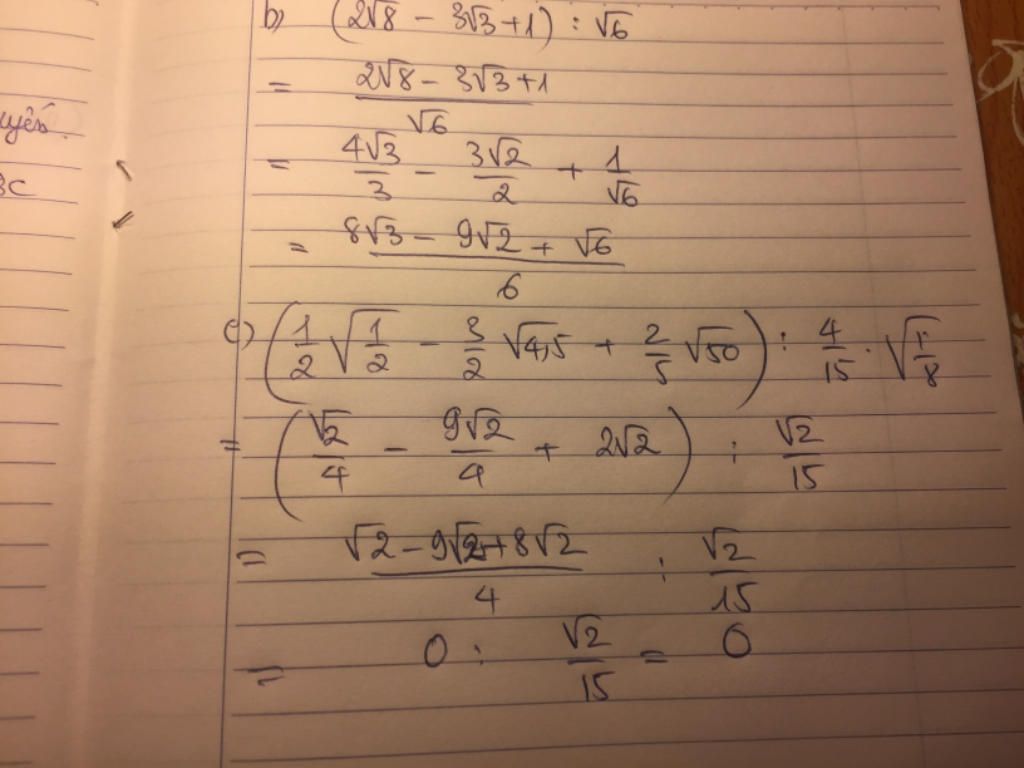 uyến.
b) (2√8 - 3√3 + 1) : √6
= (2√8 - 3√3 + 1)/√6
= 4√3/3 - 3√2/2 + 1/√6
BC
= (8√3 - 9√2 + √6)/6
c) (1/2 √(1/2) - 3/2 √4,5 + 2/5 √50) : 4/15 · √(1/8)
= (√2/4 - 9√2/4 + 2√2) : √2/15
= (√2 - 9√2 + 8√2)/4 : √2/15
= 0 : √2/15 = 0